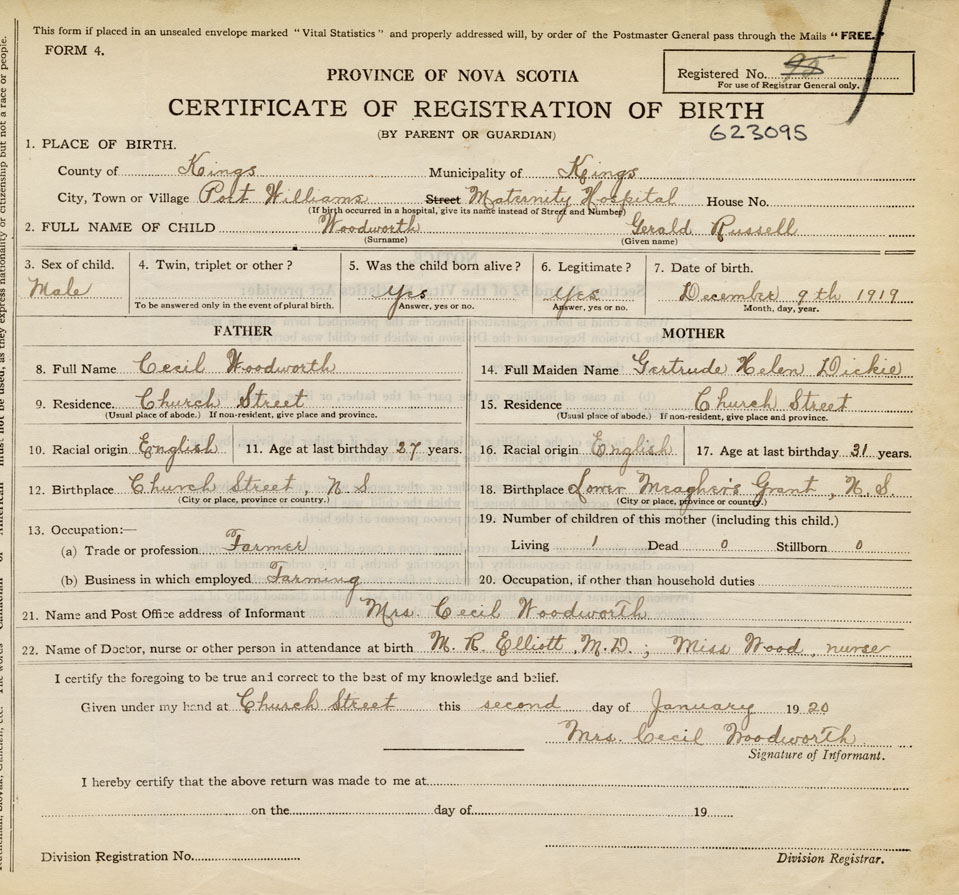 This form if placed in an unsealed envelope marked "Vital Statistics" and properly addressed will, by order of the Postmaster General pass through the Mails "FREE."
FORM 4.
PROVINCE OF NOVA SCOTIA
Registered No. 95
For use of Registrar General only.
CERTIFICATE OF REGISTRATION OF BIRTH
(BY PARENT OR GUARDIAN)
623095
1. PLACE OF BIRTH.
County of Kings Municipality of Kings
City, Town or Village Port Williams Street Maternity Hospital House No.
(If birth occurred in a hospital, give its name instead of Street and Number)
2. FULL NAME OF CHILD Woodworth Gerald Russell
(Surname) (Given name)
3. Sex of child. 4. Twin, triplet or other? 5. Was the child born alive? 6. Legitimate? 7. Date of birth.
Male Yes Yes December 9th 1919
To be answered only in the event of plural birth. Answer, yes or no. Answer, yes or no. Month, day, year.
FATHER MOTHER
8. Full Name Cecil Woodworth 14. Full Maiden Name Gertrude Helen Dickie
9. Residence. Church Street 15. Residence Church Street
(Usual place of abode.) If non-resident, give place and province. (Usual place of abode.) If non-resident, give place and province.
10. Racial origin English 11. Age at last birthday 27 years. 16. Racial origin English 17. Age at last birthday 31 years.
12. Birthplace Church Street, N.S 18. Birthplace Lower Meagher's Grant, N.S.
(City or place, province or country.) (City or place, province or country.)
13. Occupation:— 19. Number of children of this mother (including this child.)
(a) Trade or profession Farmer Living 1 Dead 0 Stillborn 0
(b) Business in which employed Farming 20. Occupation, if other than household duties
21. Name and Post Office address of Informant Mrs. Cecil Woodworth
22. Name of Doctor, nurse or other person in attendance at birth M. R. Elliott, M.D.; Miss Wood, nurse
I certify the foregoing to be true and correct to the best of my knowledge and belief.
Given under my hand at Church Street this second day of January 1920
Mrs. Cecil Woodworth
Signature of Informant.
I hereby certify that the above return was made to me at
on the day of 19
Division Registration No.
Division Registrar.